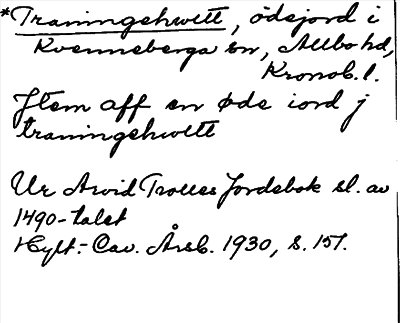 *Traningehwett, ödejord i
Kvenneberga sn, Allbo hd,
Kronob. l.
Jtem aff en øde iord j
traningehwett
Ur Arvid Trolles Jordebok sl. av
1490-talet
Hylt.-Cav. Årsb. 1930, s. 157.